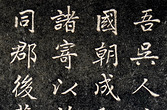 吾吳人
國朝成
諸寄以
同郡後